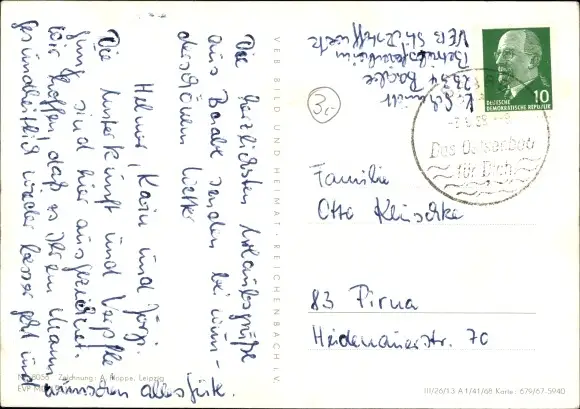 Die herzlichsten Urlaubsgrüße
aus Baabe senden bei wun-
derschönem Wetter
Helmut, Karin und Jörg.
Die Unterkunft und Verpfle-
gung sind hier ausgezeichnet.
Wir hoffen, daß es Ihrem Mann
gesundheitlich wieder besser geht und
wünschen alles Gute.
VEB BILD UND HEIMAT · REICHENBACH I. V.
K. Schmidt
2334 Baabe
Betriebsferienheim
VEB
3,-
DEUTSCHE
DEMOKRATISCHE REPUBLIK
10
Das Ostseebad
für Dich
Familie
Otto
83 Pirna
Heidenauerstr. 70
Zeichnung: A. Leipzig
EVP
III/26/13 A 1/41/68 Karte: 679/67 5940